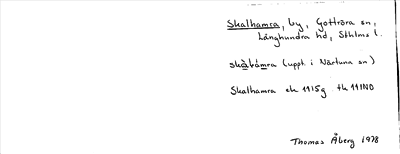 Skalhamra, by, Gottröra sn,
Långhundra hd, Sthlms l.
(uppt. i Närtuna sn)
Skalhamra ek 11I5g tk 11IN0
Thomas Åberg 1978